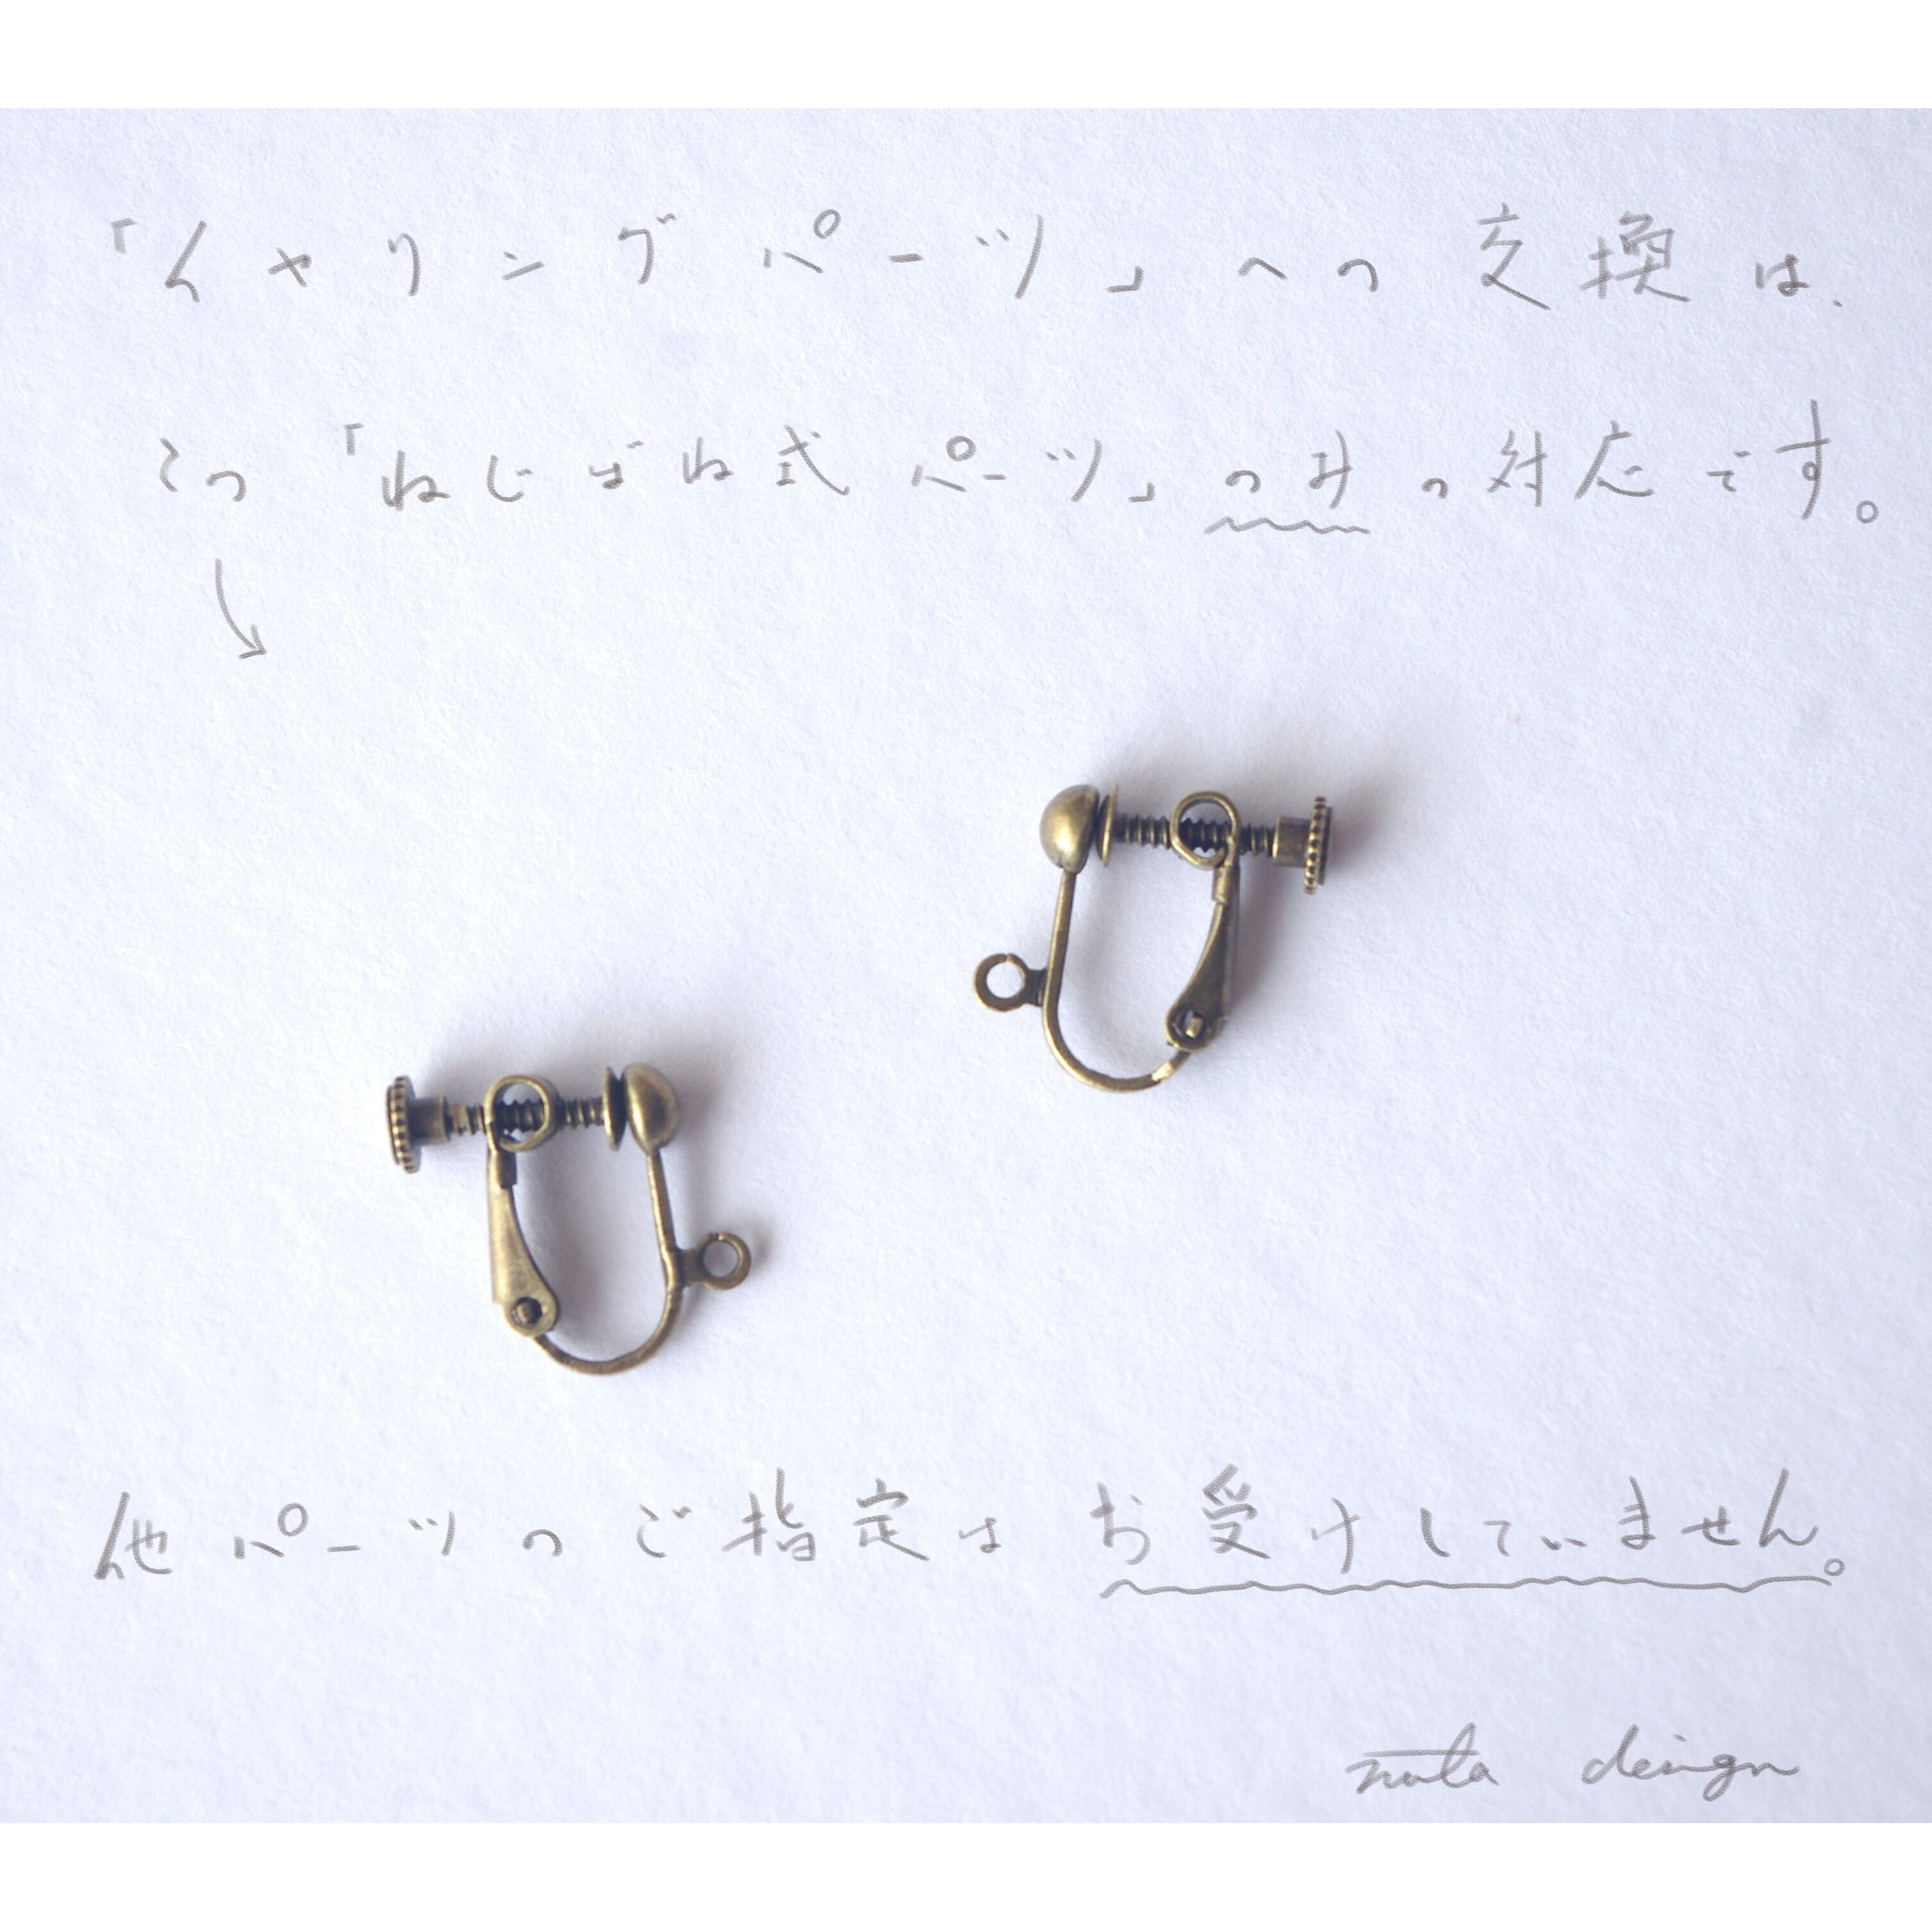 「イヤリングパーツ」への交換は、
この「ねじばね式パーツ」のみの対応です。
他パーツのご指定はお受けしていません。
nota design